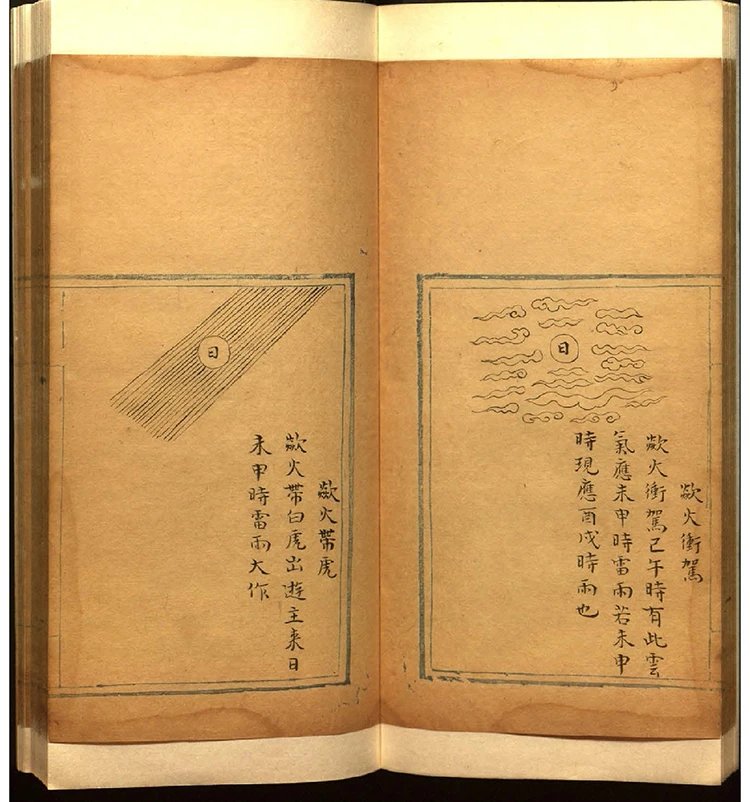 日
歘火衝駕
歘火衝駕己午時有此雲
氣應未申時雷雨若未申
時現應酉戌時雨也
日
歘火帶虎
歘火帶白虎出遊主来日
未申時雷雨大作